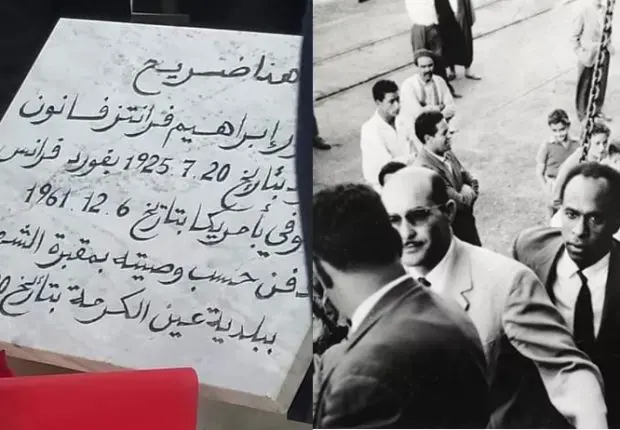 هذا ضريح
إبراهيم فرانتز فانون
بتاريخ 20.7.1925 بفورد فرانس
بأمريكا بتاريخ 6.12.1961
حسب وصيته بمقبرة
ببلدية عين الكرمة بتاريخ